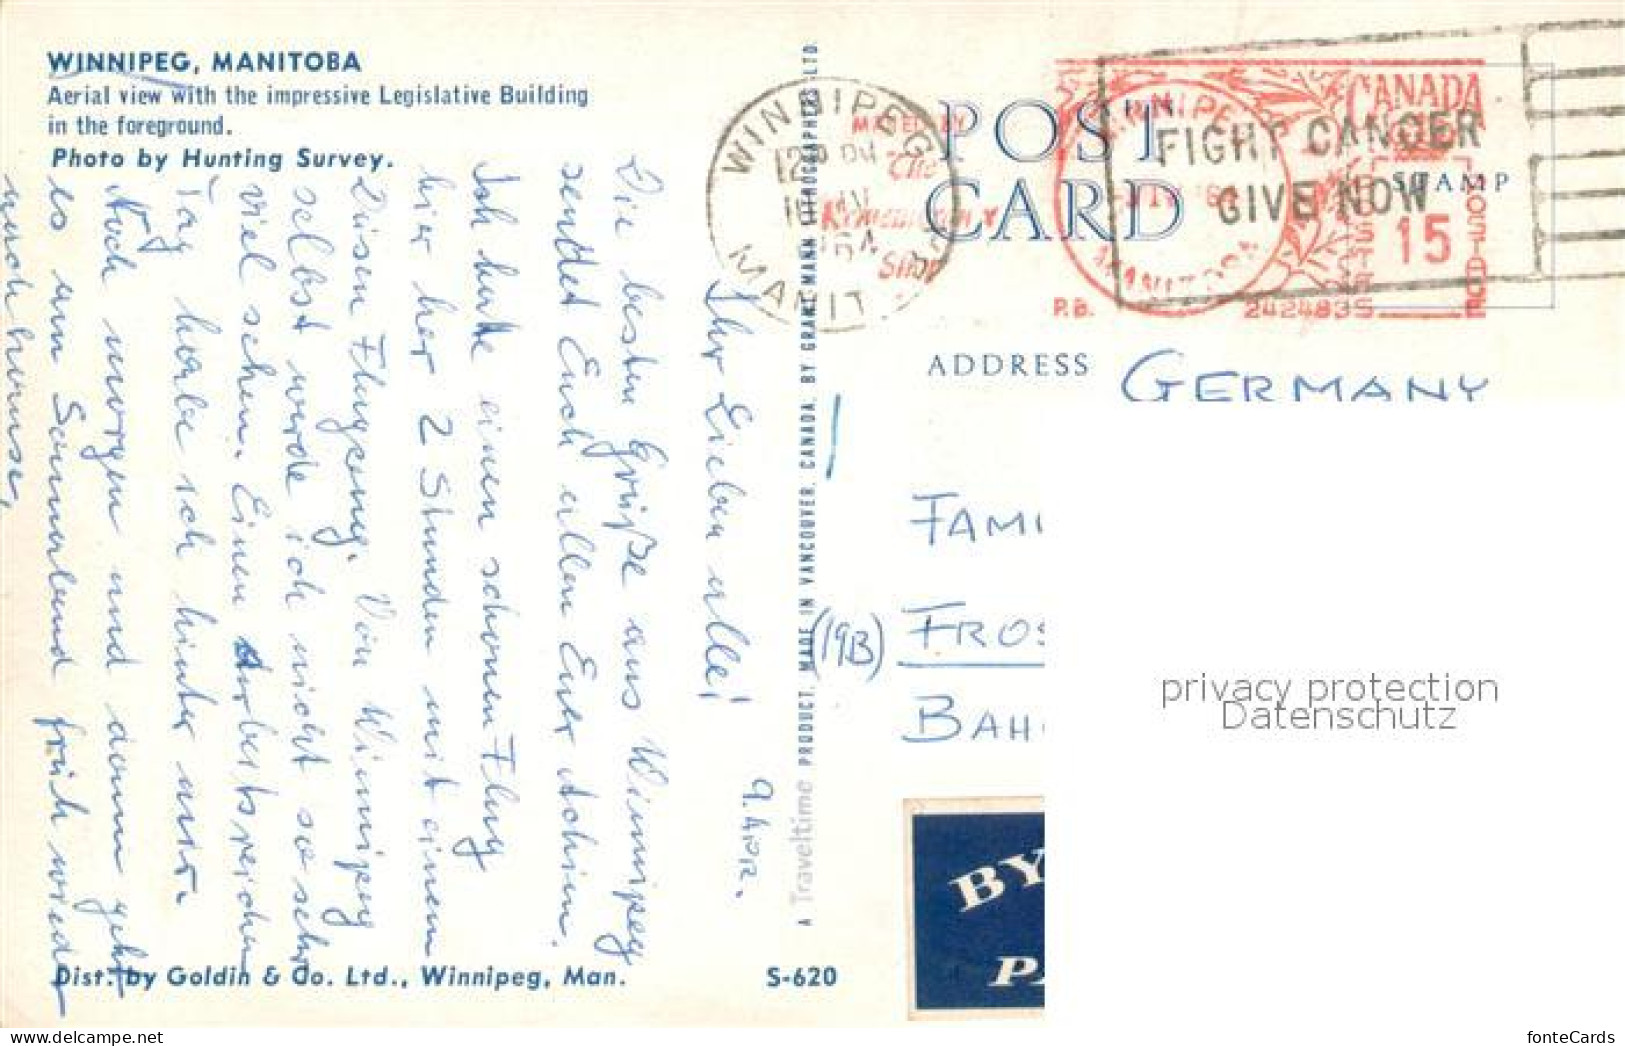 WINNIPEG, MANITOBA
Aerial view with the impressive Legislative Building
in the foreground.
Photo by Hunting Survey.
9. Apr.
Ihr Lieben alle!
Die besten Grüße aus Winnipeg
sendet Euch allen Euer Achim.
Ich hatte einen schönen Flug
hier her 2 Stunden mit einem
Düsen Flugzeug. Von Winnipeg
selbst werde ich nicht so sehr
viel sehen. Einen Arbeitsreichen
Tag habe ich hinter mir.
Noch morgen und dann geht
es am Sonnabend früh wieder
nach hause.
Dist. by Goldin & Co. Ltd., Winnipeg, Man.
S-620
A Traveltime PRODUCT, MADE IN VANCOUVER, CANADA, BY GRANT-MANN LITHOGRAPHERS LTD.
WINNIPEG
12 PM
10 IV
64
MANIT
MAILED BY
The
Remembrance
Shop
POST
CARD
WINNIPEG
MANITOBA
P.B. 242483
CANADA
15
POSTAGE
POSTES
PAID
FIGHT CANCER
GIVE NOW
STAMP
ADDRESS
GERMANY
FAMI
(19B) FROS
BAH
BY
PA
privacy protection
Datenschutz
www.delcampe.net
fonteCards